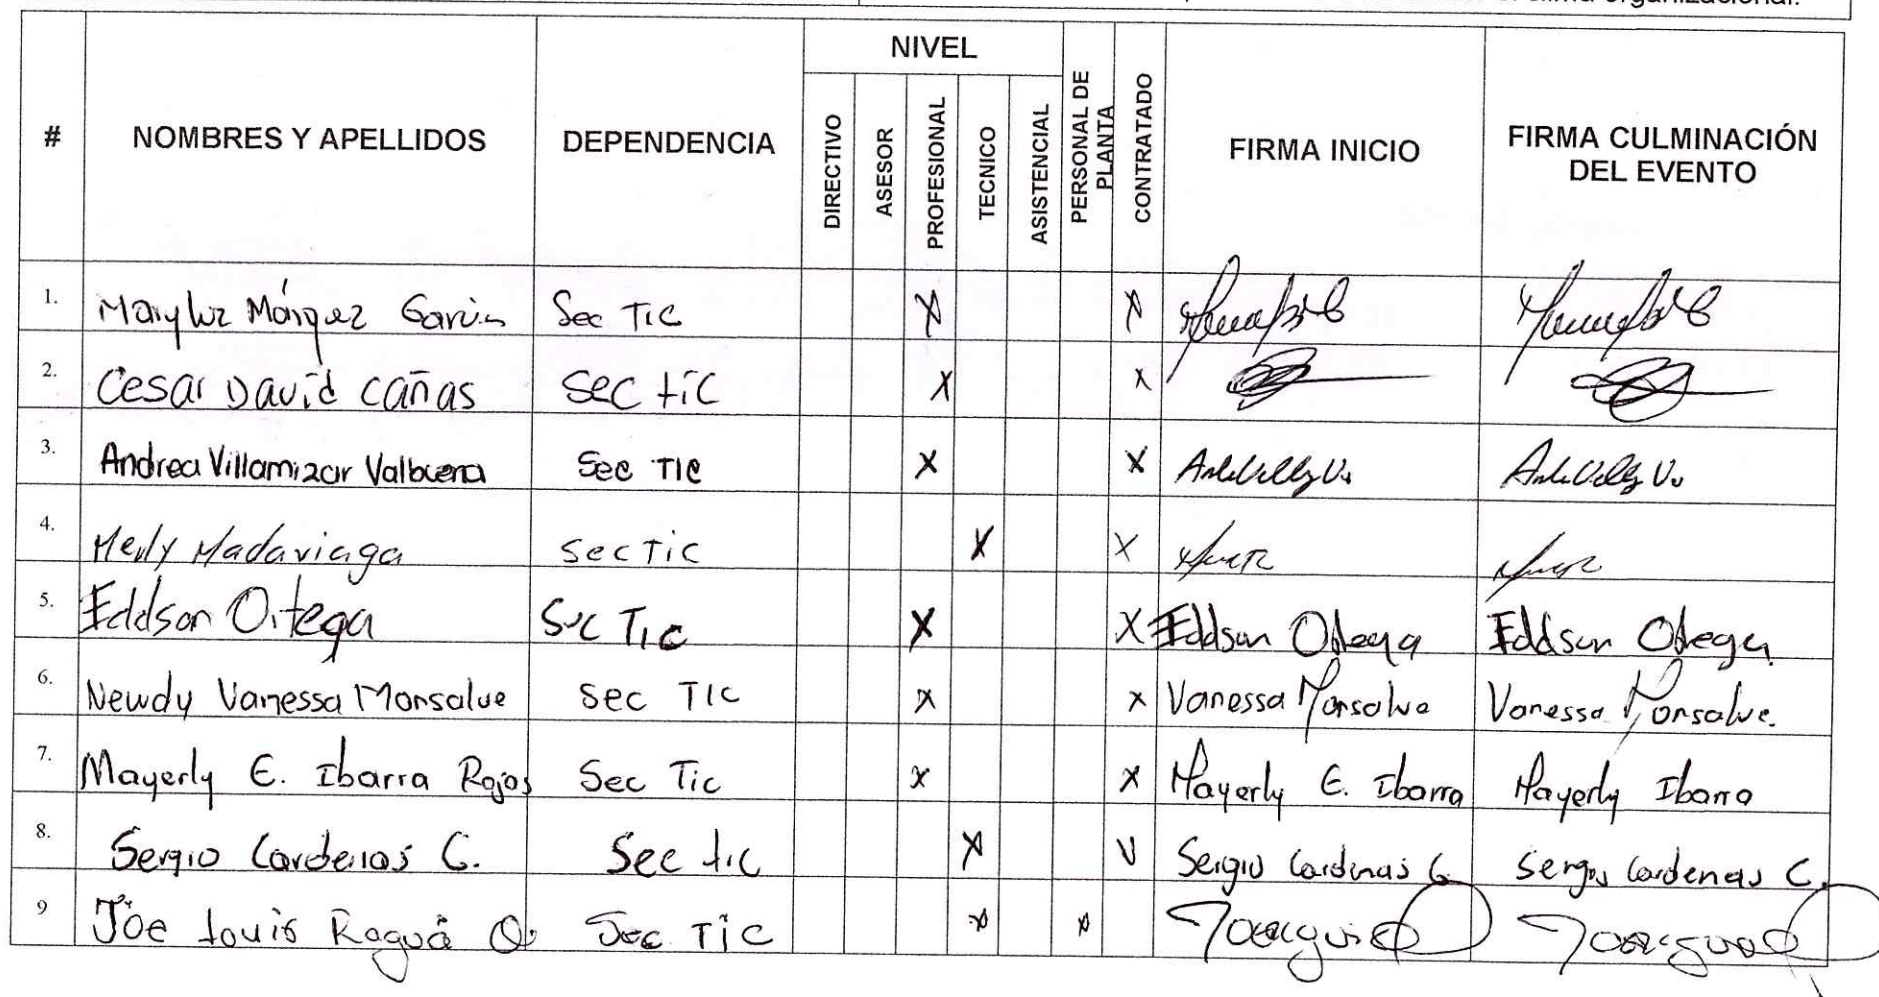 clima organizacional.
# NOMBRES Y APELLIDOS DEPENDENCIA NIVEL DIRECTIVO ASESOR PROFESIONAL TECNICO ASISTENCIAL PERSONAL DE PLANTA CONTRATADO FIRMA INICIO FIRMA CULMINACIÓN DEL EVENTO
1. Maryluz Márquez Sec TIC X X
2. Cesar David Cañas Sec tic X X
3. Andrea Villamizar Valbuena Sec TIC X X
4. Merly Madaviaga Sec Tic X X
5. Eddson Ortega Sec Tic X X Eddson Ortega Eddson Ortega
6. Newdy Vanessa Monsalve Sec TIC X X Vanessa Monsalve Vanessa Monsalve.
7. Mayerly E. Ibarra Rojas Sec Tic X X Mayerly E. Ibarra Mayerly Ibarra
8. Sergio Cardenas C. Sec tic X V Sergio Cardenas C. Sergio Cardenas C.
9 Joe Louis Raguá O Sec Tic X X